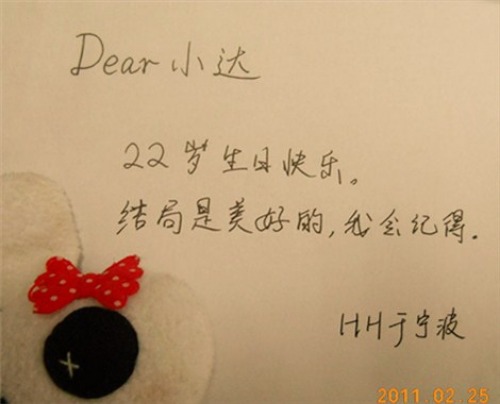 Dear 小达
22岁生日快乐。
结局是美好的,我会记得.
HH于宁波
2011.02.25